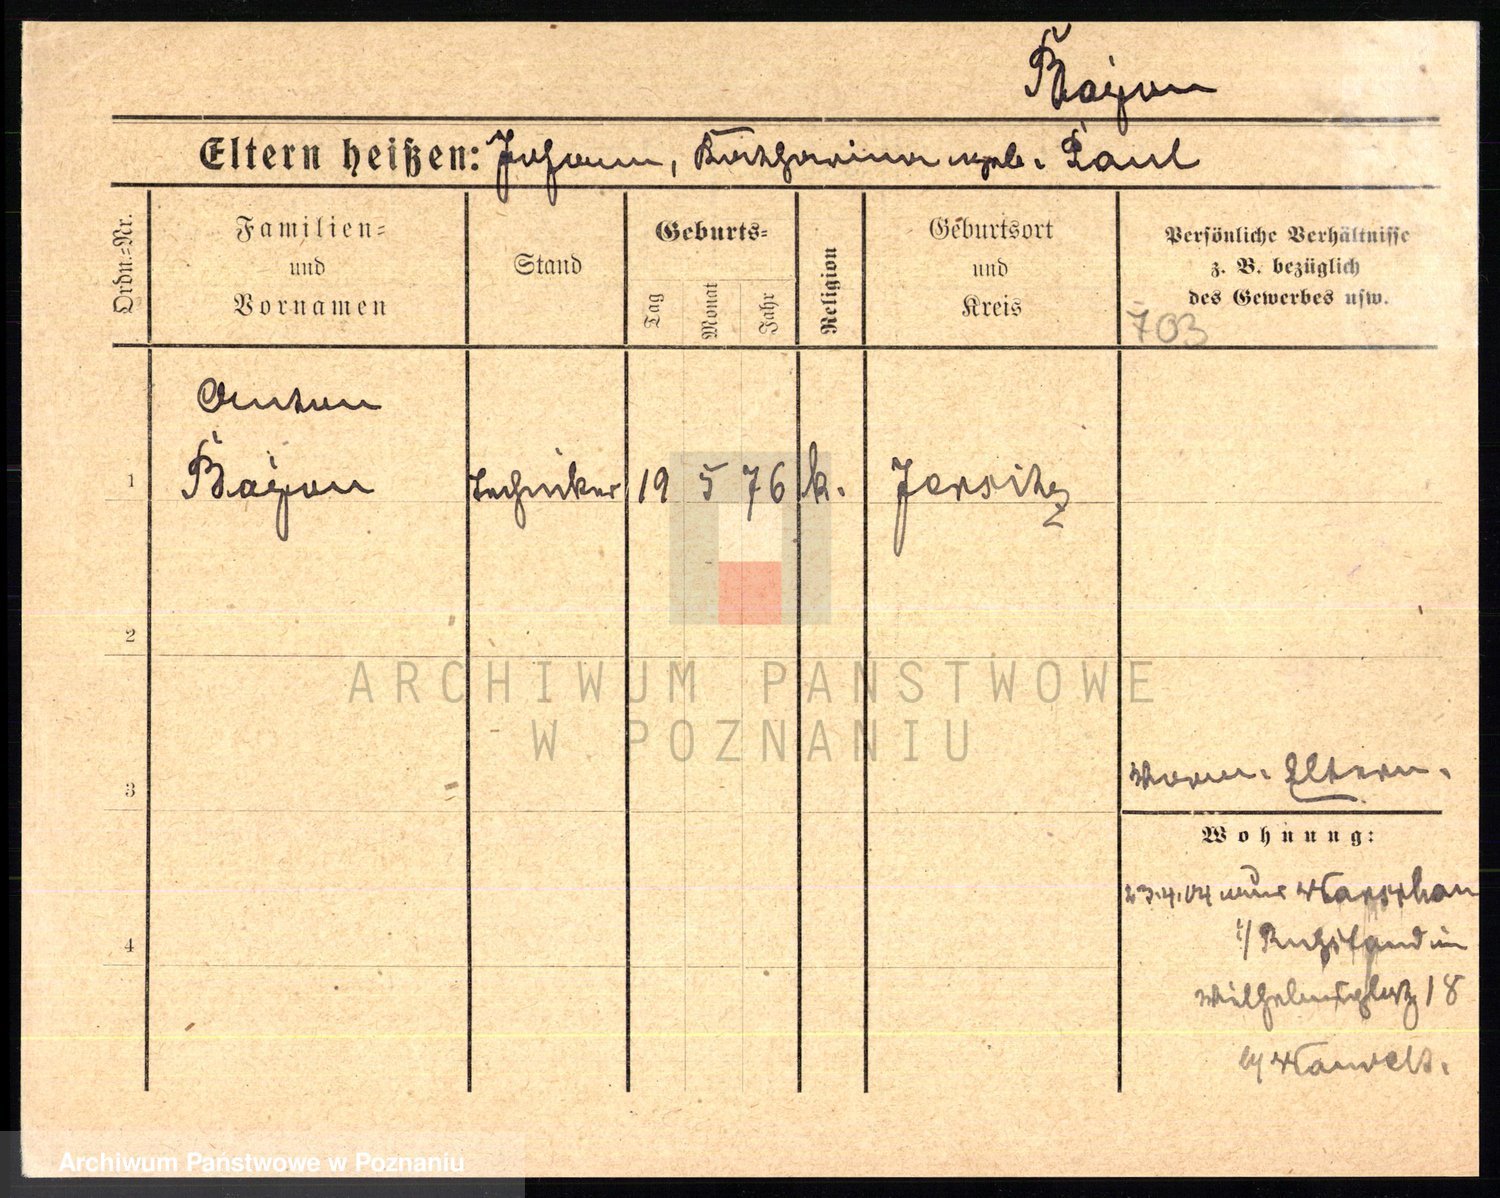 Bajon
Eltern heißen: Johann, Katharina geb. Paul
Ordn.=Nr.
Familien=
und
Vornamen
Stand
Geburts=
Tag
Monat
Jahr
Religion
Geburtsort
und
Kreis
Persönliche Verhältnisse
z. B. bezüglich
des Gewerbes usw.
703
Anton
1 Bajon Techniker 19 5 76 k. Jersitz
2
3
Eltern.
Wohnung:
23.4.04 Warschau
i/ Rußland in
Wilhelmsplatz 18
4
ARCHIWUM PAŃSTWOWE
W POZNANIU
Archiwum Państwowe w Poznaniu